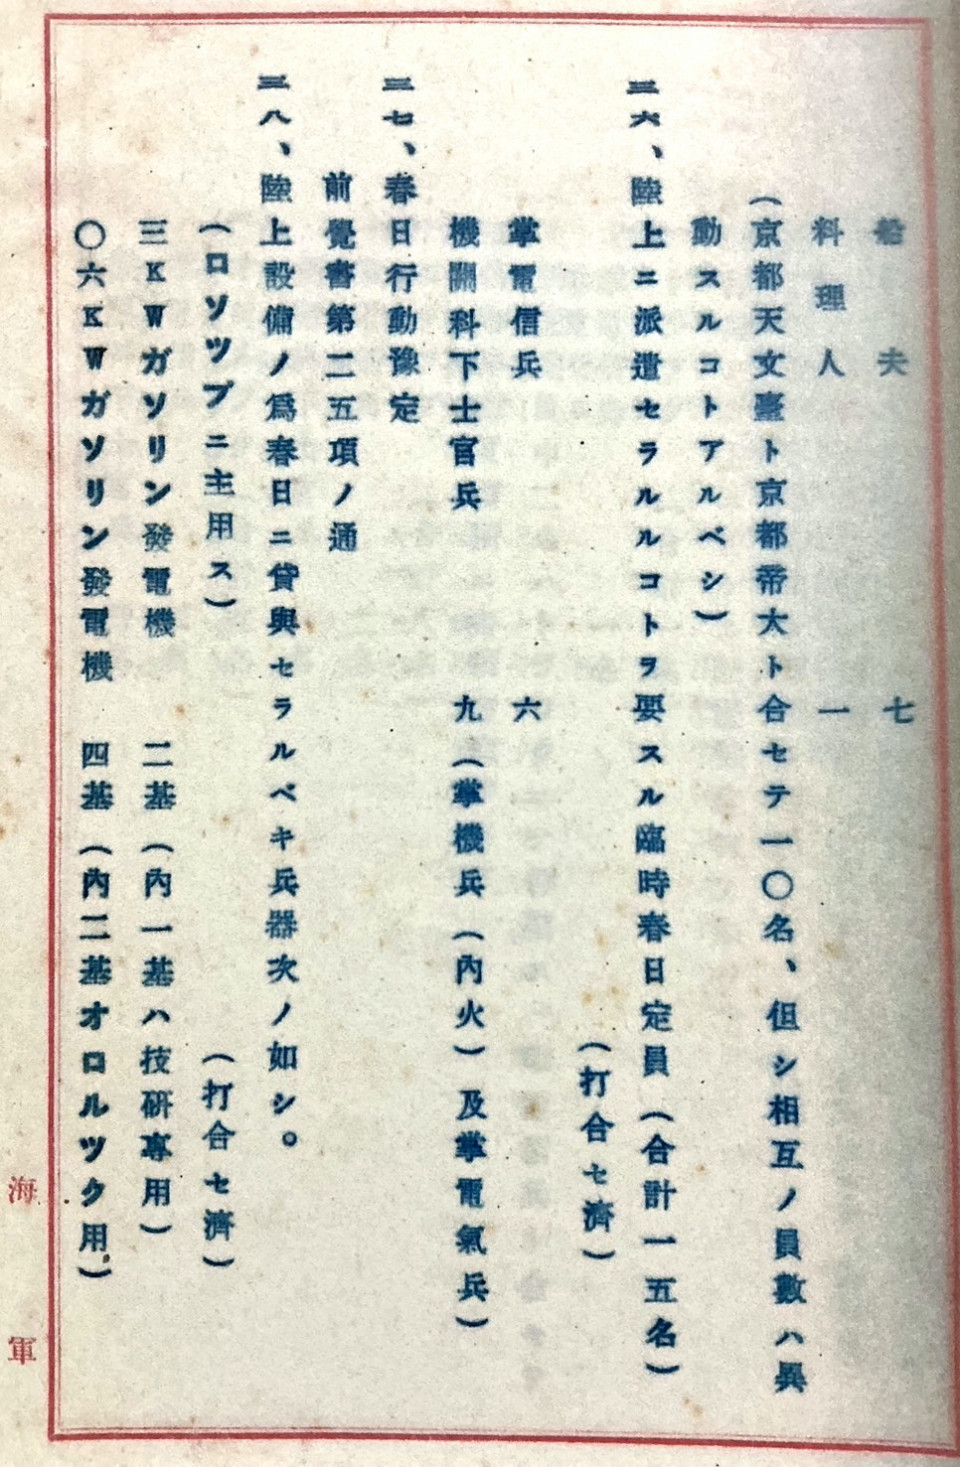 給夫 七
料理人 一
(京都天文臺ト京都帝大ト合セテ一〇名、但シ相互ノ員數ハ異
動スルコトアルベシ)
三六、陸上ニ派遣セラルルコトヲ要スル臨時春日定員(合計一五名)
(打合セ濟)
掌電信兵 六
機關科下士官兵 九(掌機兵(內火)及掌電氣兵)
三七、春日行動豫定
前覺書第二五項ノ通
三八、陸上設備ノ爲春日ニ貸與セラルベキ兵器次ノ如シ。
(ロソツプニ主用ス) (打合セ濟)
三KWガソリン發電機 二基(內一基ハ技研專用)
〇六KWガソリン發電機 四基(內二基オロルツク用)
海軍